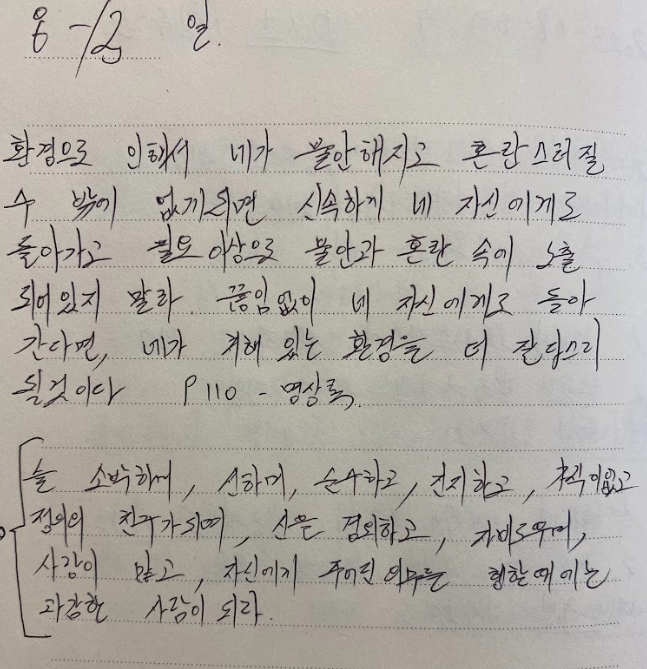 8-12 일.
환경으로 인해서 네가 불안해지고 혼란스러질
수 밖에 없게되면 신속하게 네 자신에게로
돌아가고 필요 이상으로 불안과 혼란 속에 노출
되어있지 말라. 끊임없이 네 자신에게로 돌아
간다면, 네가 처해 있는 환경을 더 잘 다스리
될것이다 P110 - 명상록,
늘 소박하며, 선하며, 순수하고, 진지하고,
정의의 친구가되며, 신을 경외하고, 자비로우며,
사랑이 많고, 자신에게 주어진 의무를 행할때에는
과감한 사람이 되라.